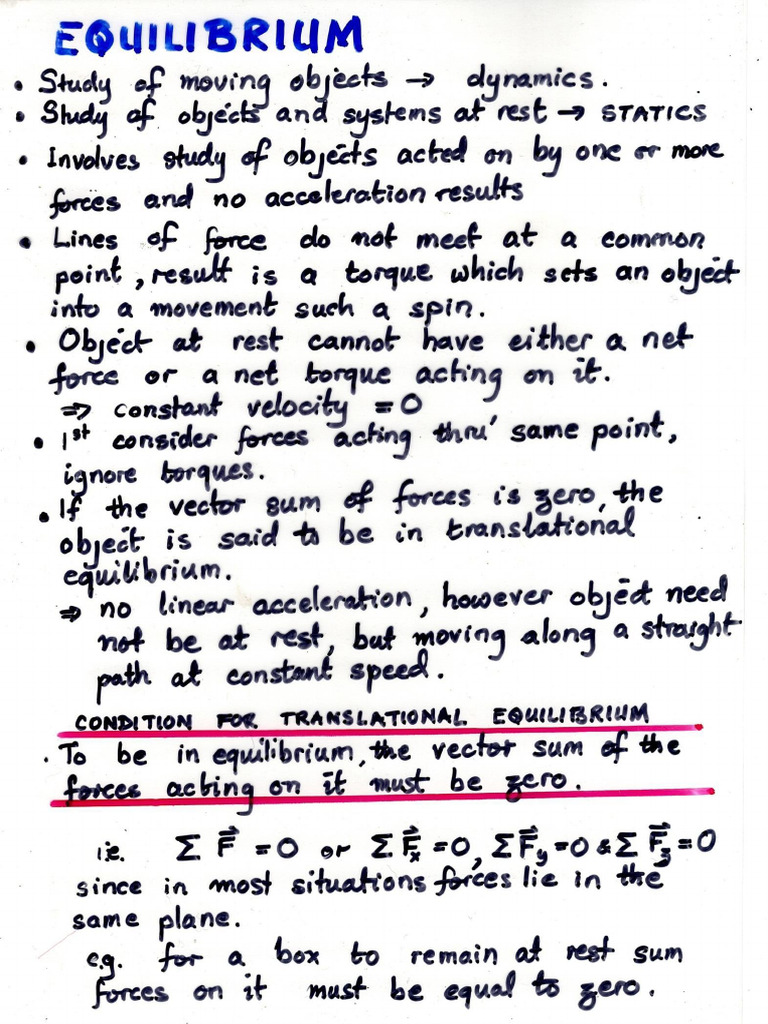 EQUILIBRIUM
• Study of moving objects → dynamics.
• Study of objects and systems at rest → STATICS
• Involves study of objects acted on by one or more
forces and no acceleration results
• Lines of force do not meet at a common
point, result is a torque which sets an object
into a movement such a spin.
• Object at rest cannot have either a net
force or a net torque acting on it.
⇒ constant velocity = 0
• 1st consider forces acting thru' same point,
ignore torques.
• If the vector sum of forces is zero, the
object is said to be in translational
equilibrium.
⇒ no linear acceleration, however object need
not be at rest, but moving along a straight
path at constant speed.
CONDITION FOR TRANSLATIONAL EQUILIBRIUM
• To be in equilibrium, the vector sum of the
forces acting on it must be zero.
i.e. Σ F⃗ = 0 or Σ F⃗x = 0, Σ F⃗y = 0 & Σ F⃗z = 0
since in most situations forces lie in the
same plane.
e.g. for a box to remain at rest sum
forces on it must be equal to zero.